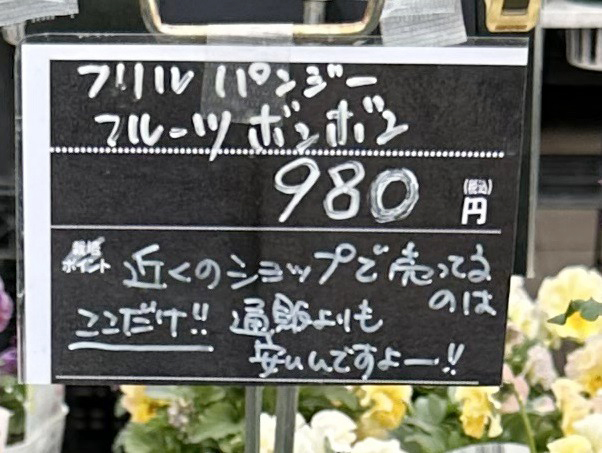 フリル パンジー
フルーツ ボンボン
980
(税込)
円
栽培
ポイント
近くのショップで売ってる
のは
ここだけ!! 通販よりも
安いんですよー!!